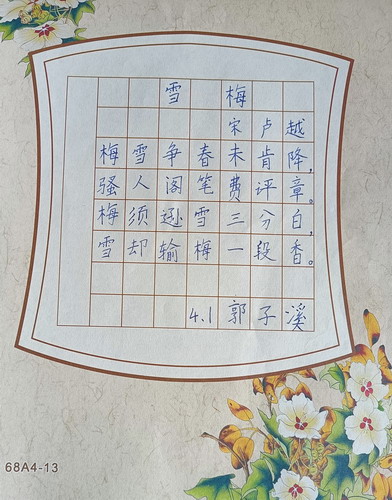 雪 梅
宋 卢 越
梅雪争春未肯降,
骚人阁笔费评章。
梅须逊雪三分白,
雪却输梅一段香。
4.1 郭子溪
68A4-13